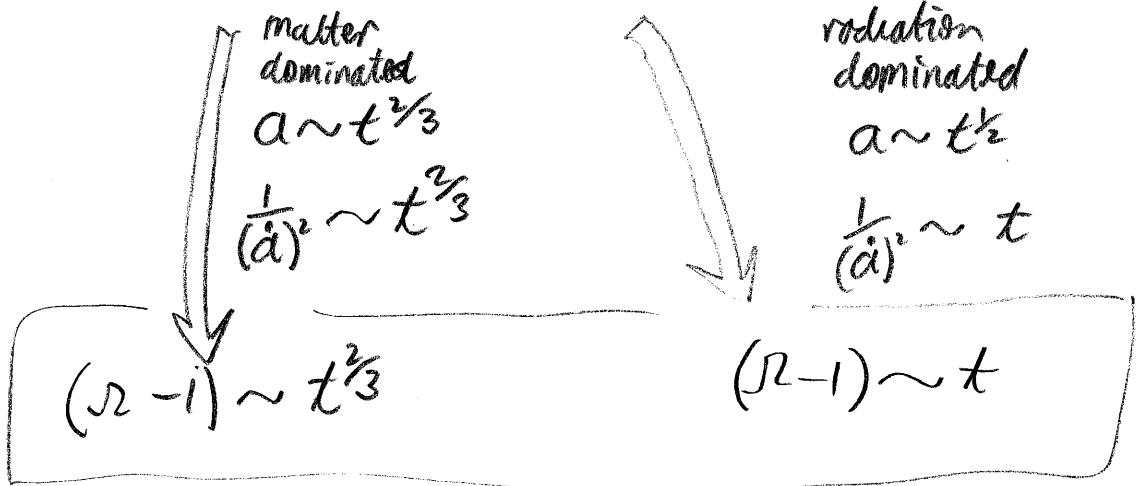 matter
dominated
a ~ t^2/3
1/(ȧ)² ~ t^2/3
(Ω - 1) ~ t^2/3
radiation
dominated
a ~ t^1/2
1/(ȧ)² ~ t
(Ω - 1) ~ t